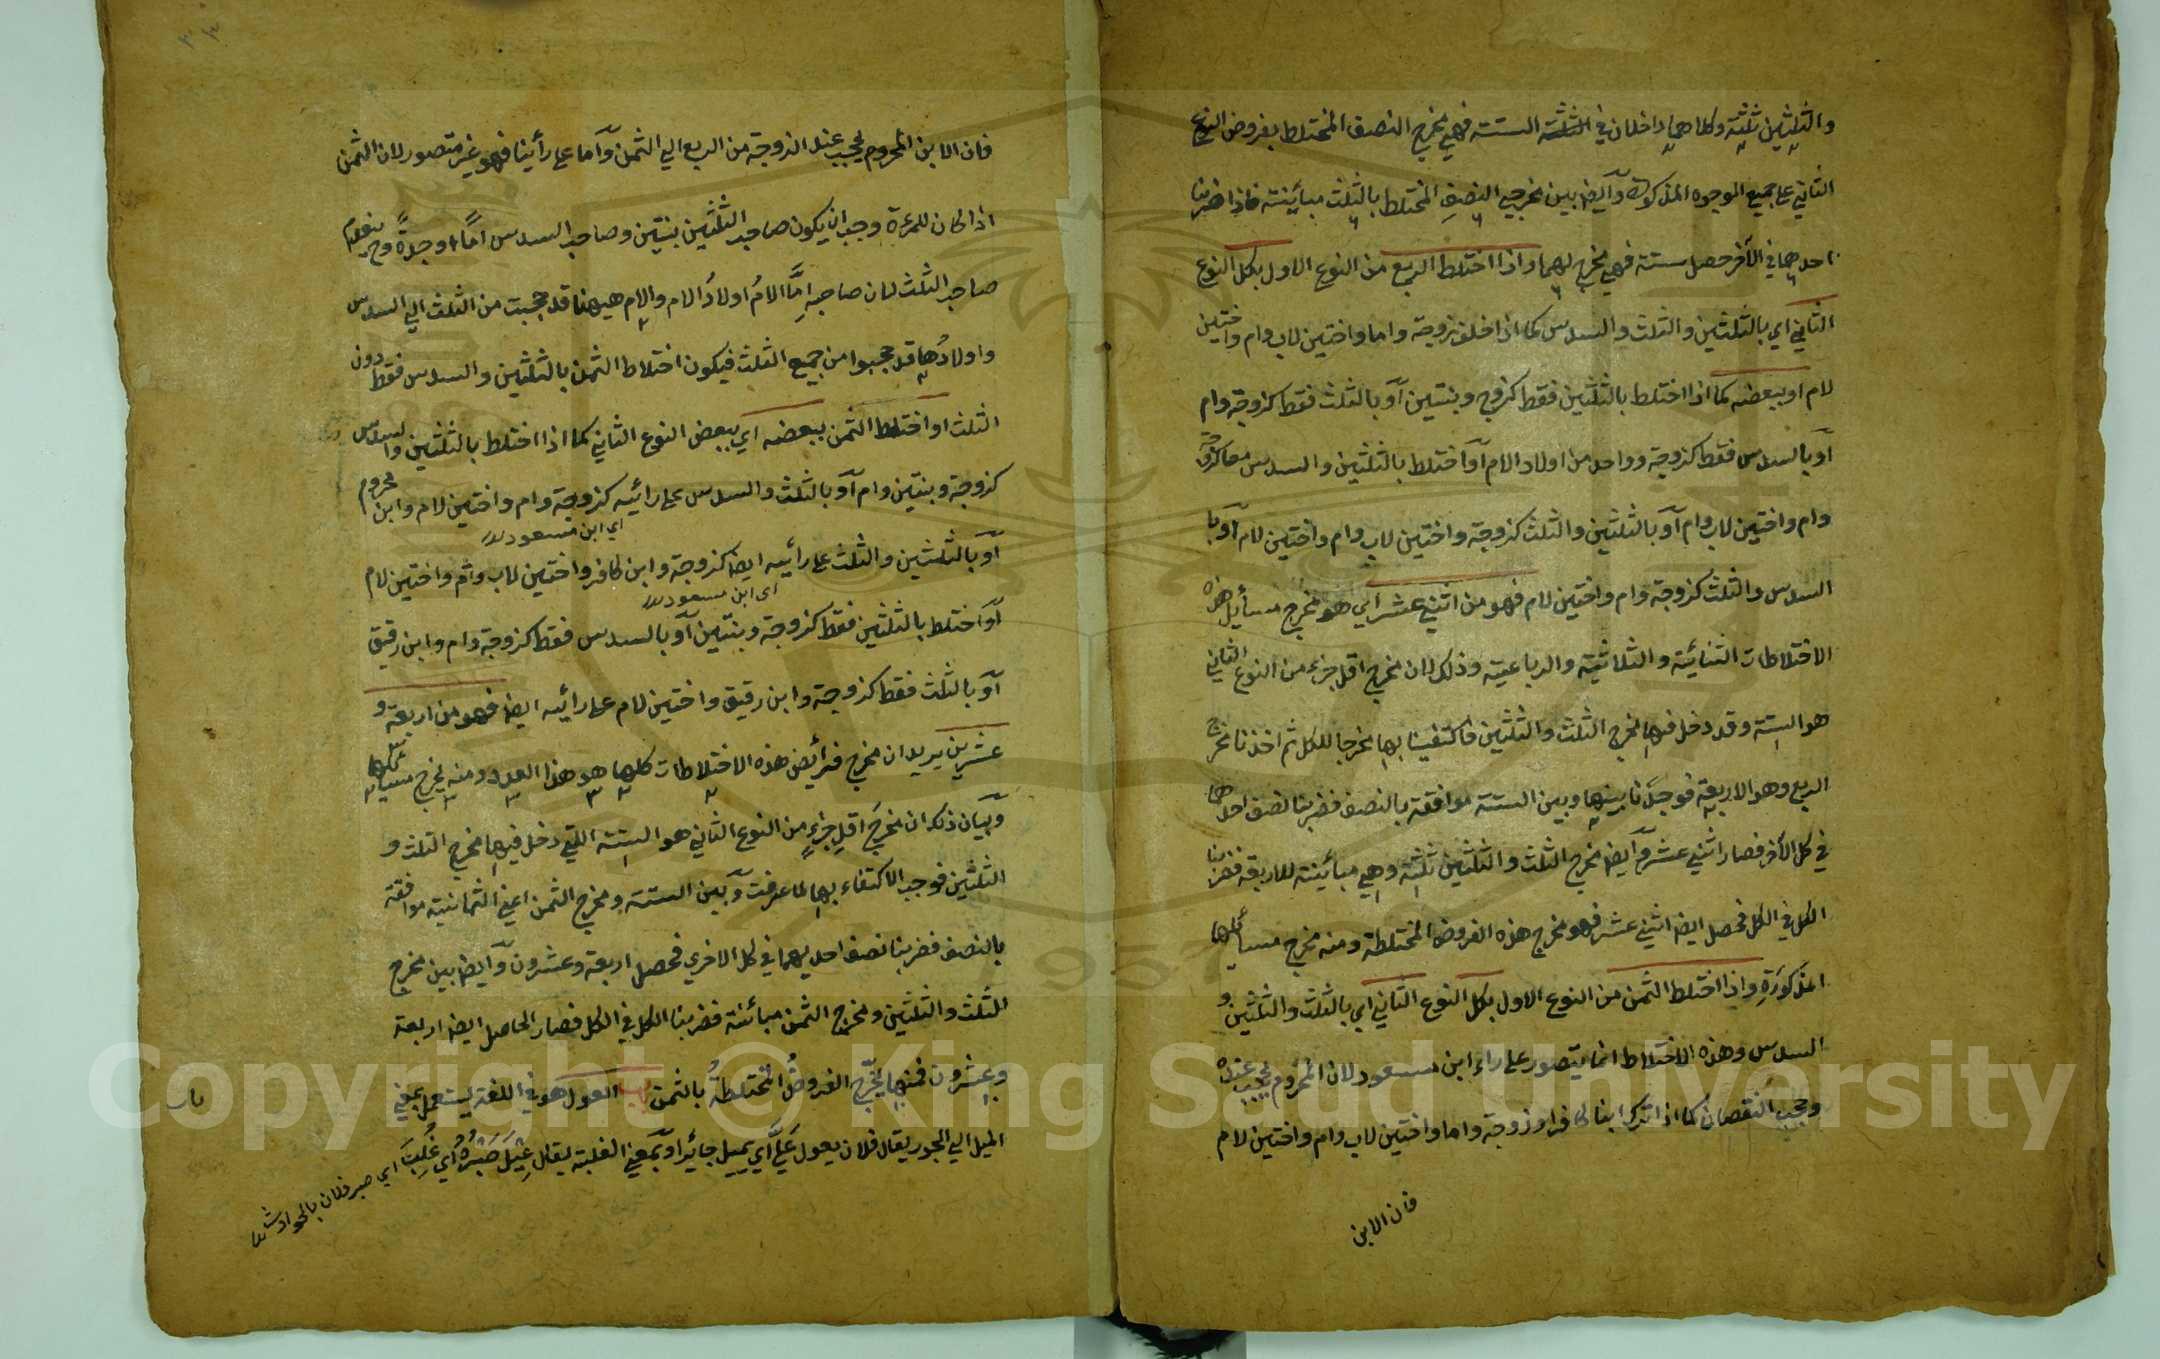 والثلثين ثلثة وكلاهما داخلان في الستة فهي مخرج النصف المختلط بفروض النوع
الثاني على جميع الوجوه المذكورة وآيضا بين مخرجي النصف المختلط بالثلث مبائنة فاذا ضربنا
احدهما في الآخر حصل ستة فهي مخرج لهما واذا اختلط الربع من النوع الاول بكل النوع
الثاني اي بالثلثين والثلث والسدس كما اذا خلف زوجة واما واختين لاب وام واختين
لام او ببعضه كما اذا اختلط بالثلثين فقط كزوج وبنتين آو بالثلث فقط كزوجة وام
آو بالسدس فقط كزوجة وواحد من اولاد الام آو اختلط بالثلثين والسدس معا كزوجة
وام واختين لاب وام آو بالثلثين والثلث كزوجة واختين لاب وام واختين لام آو با
السدس والثلث كزوجة وام واختين لام فهو من اثني عشر اي هو مخرج مسائل هذه
الاختلاطات الثنائية والثلاثية والرباعية وذلك لان مخرج اقل جزء من النوع الثاني
هو الستة وقد دخل فيها مخرج الثلث والثلثين فاكتفينا بها مخرجا للكل ثم اخذنا مخرج
الربع وهو الاربعة فوجدنا بينها وبين الستة موافقة بالنصف فضربنا نصف احدهما
في كل الآخر فصار اثني عشر وآيضا مخرج الثلث والثلثين ثلثة وهي مبائنة للاربعة فضربنا
الكل في الكل فحصل ايضا اثني عشر فهو مخرج هذه الفروض المختلطة ومنه مخرج مسائلها
المذكورة واذا اختلط الثمن من النوع الاول بكل النوع الثاني اي بالثلث والثلثين و
السدس وهذه الاختلاط انما يتصور على راء ابن مسعود لان المحروم يحجب عنده
وحجب النقصان كما اذا ترك ابنا كافرا وزوجة واما واختين لاب وام واختين لام
فان الابن
فان الابن المحروم يحجب عنده الزوجة من الربع الي الثمن وآما على رأينا فهو غير متصور لان الثمن
اذا كان للمرءة وجب ان يكون صاحب الثلثين بنتين وصاحب السدس اما او جدة وح
صاحب الثلث لان صاحبه اما الام او اولاد الام والام هيهنا قد حجبت من الثلث الي السدس
واولادها قد حجبوا من جميع الثلث فيكون اختلاط الثمن بالثلثين والسدس فقط دون
الثلث او اختلط الثمن ببعضه اي ببعض النوع الثاني كما اذا اختلط بالثلثين والسدس
كزوجة وبنتين وام آو بالثلث والسدس على رائيه كزوجة وام واختين لام وابن محروم
اي ابن مسعود
آو بالثلثين والثلث على رائيه ايضا كزوجة وابن كافر واختين لاب وام واختين لام
اي ابن مسعود
آو اختلط بالثلثين فقط كزوجة وبنتين آو بالسدس فقط كزوجة وام وابن رقيق
آو بالثلث فقط كزوجة وابن رقيق واختين لام على رائيه ايضا فهو من اربعة و
عشرين يريد ان مخرج فرائض هذه الاختلاطات كلها هو هذا العدد ومنه يخرج مسائلها
وبيان ذلك ان مخرج اقل جزء من النوع الثاني هو الستة التي دخل فيها مخرج الثلث و
الثلثين فوجب الاكتفاء بها لما عرفت وبين الستة ومخرج الثمن اعني الثمانية موافقة
بالنصف فضربنا نصف احديهما في كل الاخري فحصل اربعة وعشرون وآيضا بين مخرج
الثلث والثلثين ومخرج الثمن مبائنة فضربنا الكل في الكل فصار الحاصل ايضا اربعة
وعشرون فمنها يخرج الفروض المختلطة بالثمن باب العول هو في اللغة يستعمل بمعني
باب
الميل الي الجور يقال فلان يعول علي اي يميل جائرا وبمعني الغلبة يقال عيل صبره اي غلب
اي صبر فلان بالحوادث
Copyright © King Saud University
1957